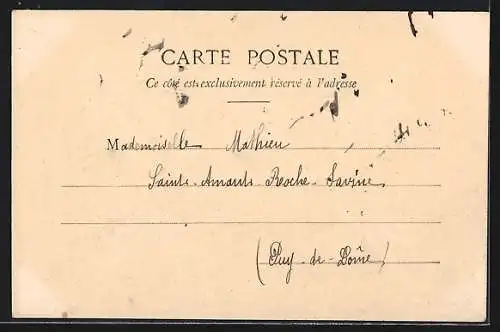 CARTE POSTALE
Ce côté est exclusivement réservé à l'adresse
Mademoiselle Mathieu
Saint-Amant-Roche-Savine
(Puy-de-Dôme)